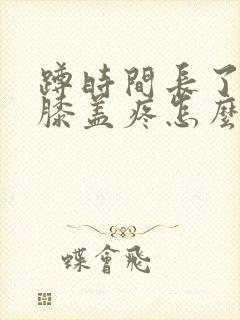 蹲時間長了
膝蓋疼怎麼
蝶會飛